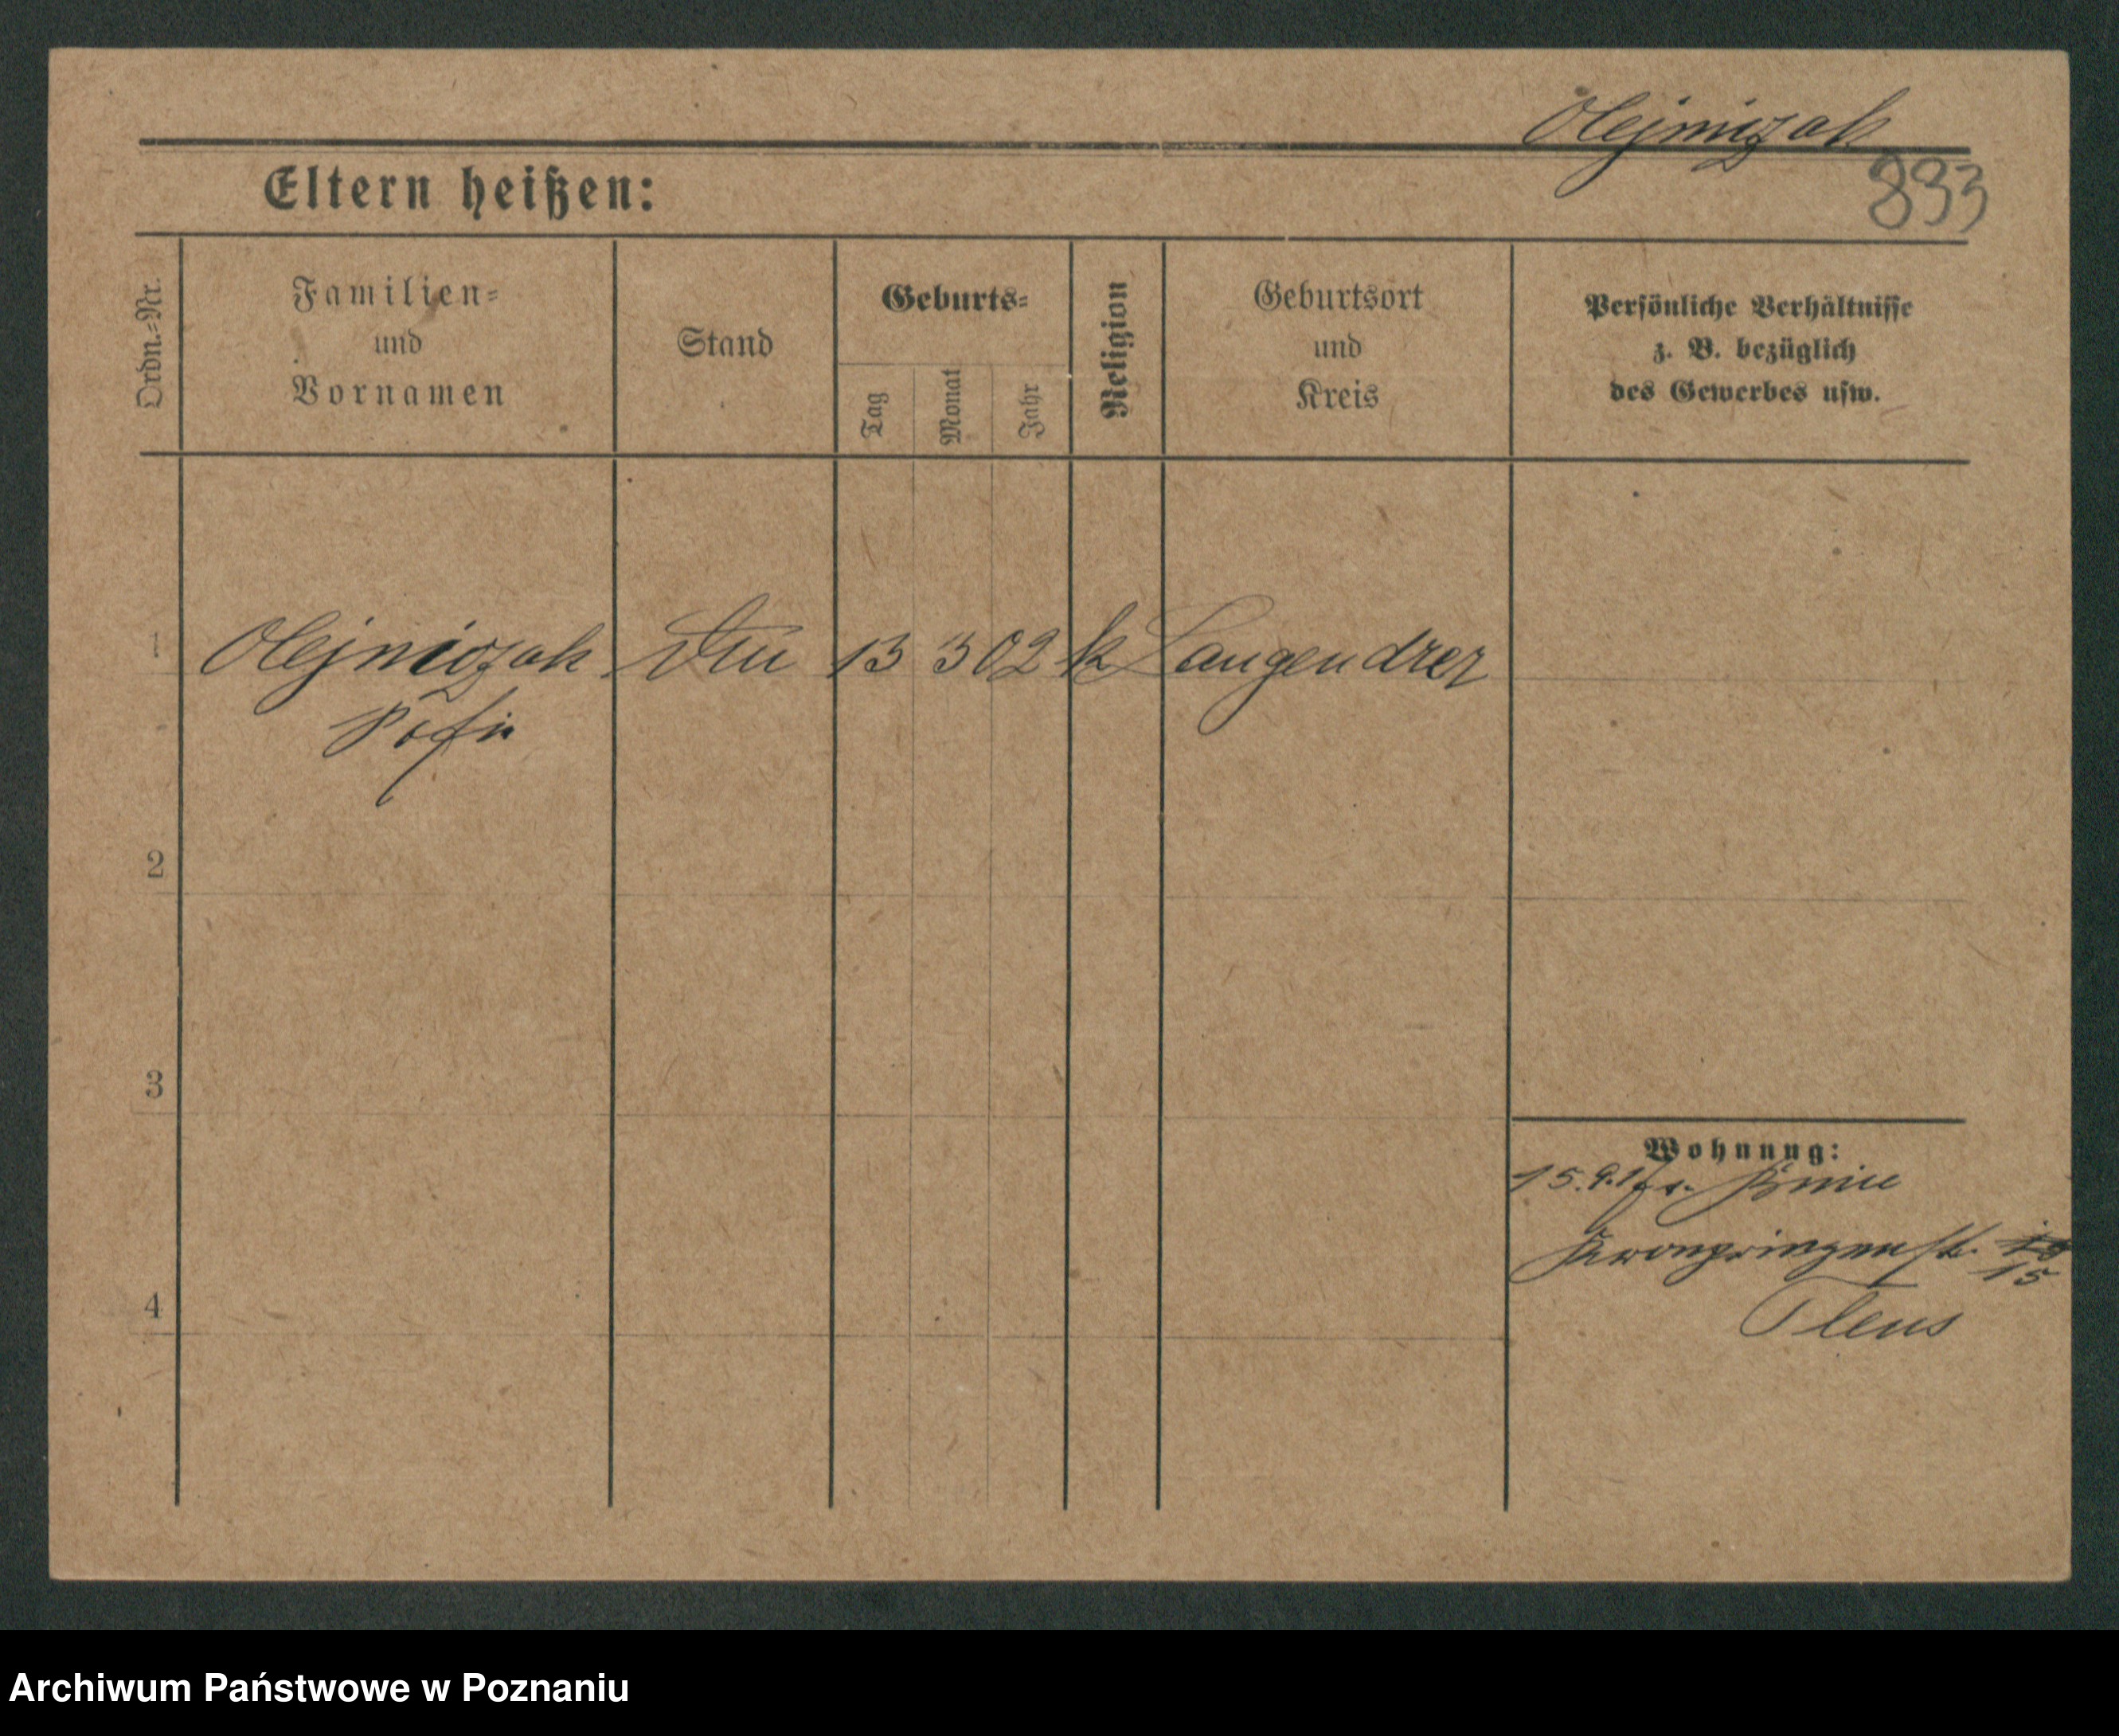 Olejniczak
Eltern heißen:
893
Ordn.=Nr.
Familien=
und
Vornamen
Stand
Geburts=
Tag
Monat
Jahr
Religion
Geburtsort
und
Kreis
Persönliche Verhältnisse
z. B. bezüglich
des Gewerbes usw.
1
Olejniczak
13 3 02 k Langendreer
Sofie
2
3
Wohnung:
15.9.17
Kronprinzenstr.
15
4
Archiwum Państwowe w Poznaniu